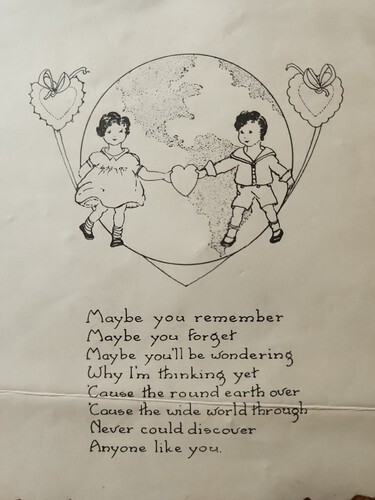 Maybe you remember
Maybe you forget
Maybe you'll be wondering
Why I'm thinking yet
'Cause the round earth over
'Cause the wide world through
Never could discover
Anyone like you.